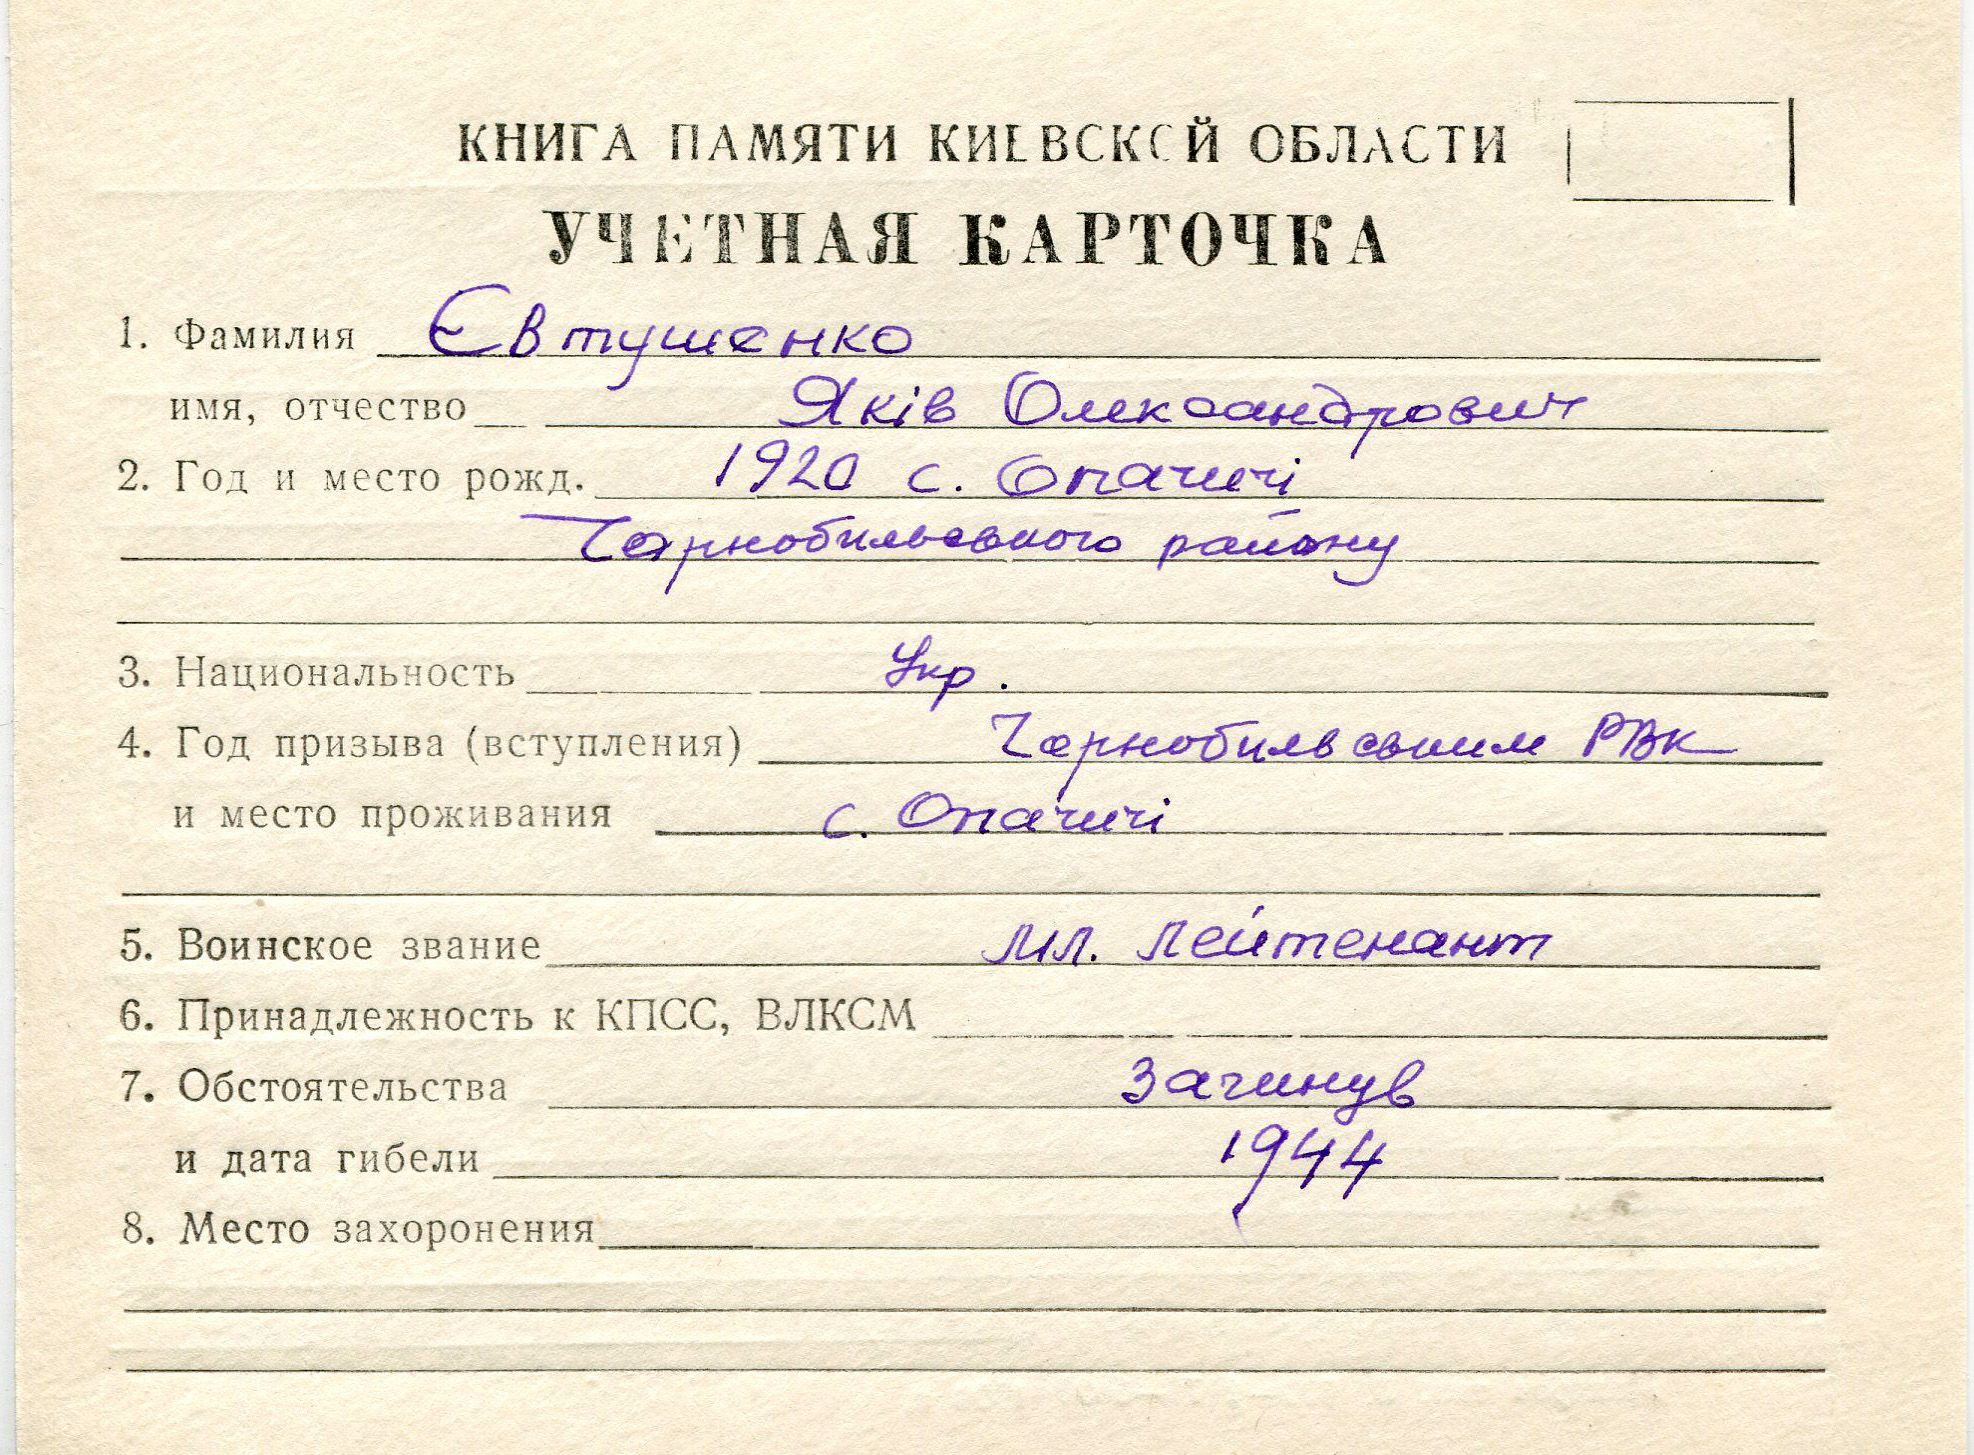 КНИГА ПАМЯТИ КИЕВСКОЙ ОБЛАСТИ
УЧЕТНАЯ КАРТОЧКА
1. Фамилия Євтушенко
имя, отчество Яків Олександрович
2. Год и место рожд. 1920 с. Опачичі
Чорнобильського району
3. Национальность Укр.
4. Год призыва (вступления) Чорнобильським РВК
и место проживания с. Опачичі
5. Воинское звание мл. лейтенант
6. Принадлежность к КПСС, ВЛКСМ
7. Обстоятельства Загинув
и дата гибели 1944
8. Место захоронения